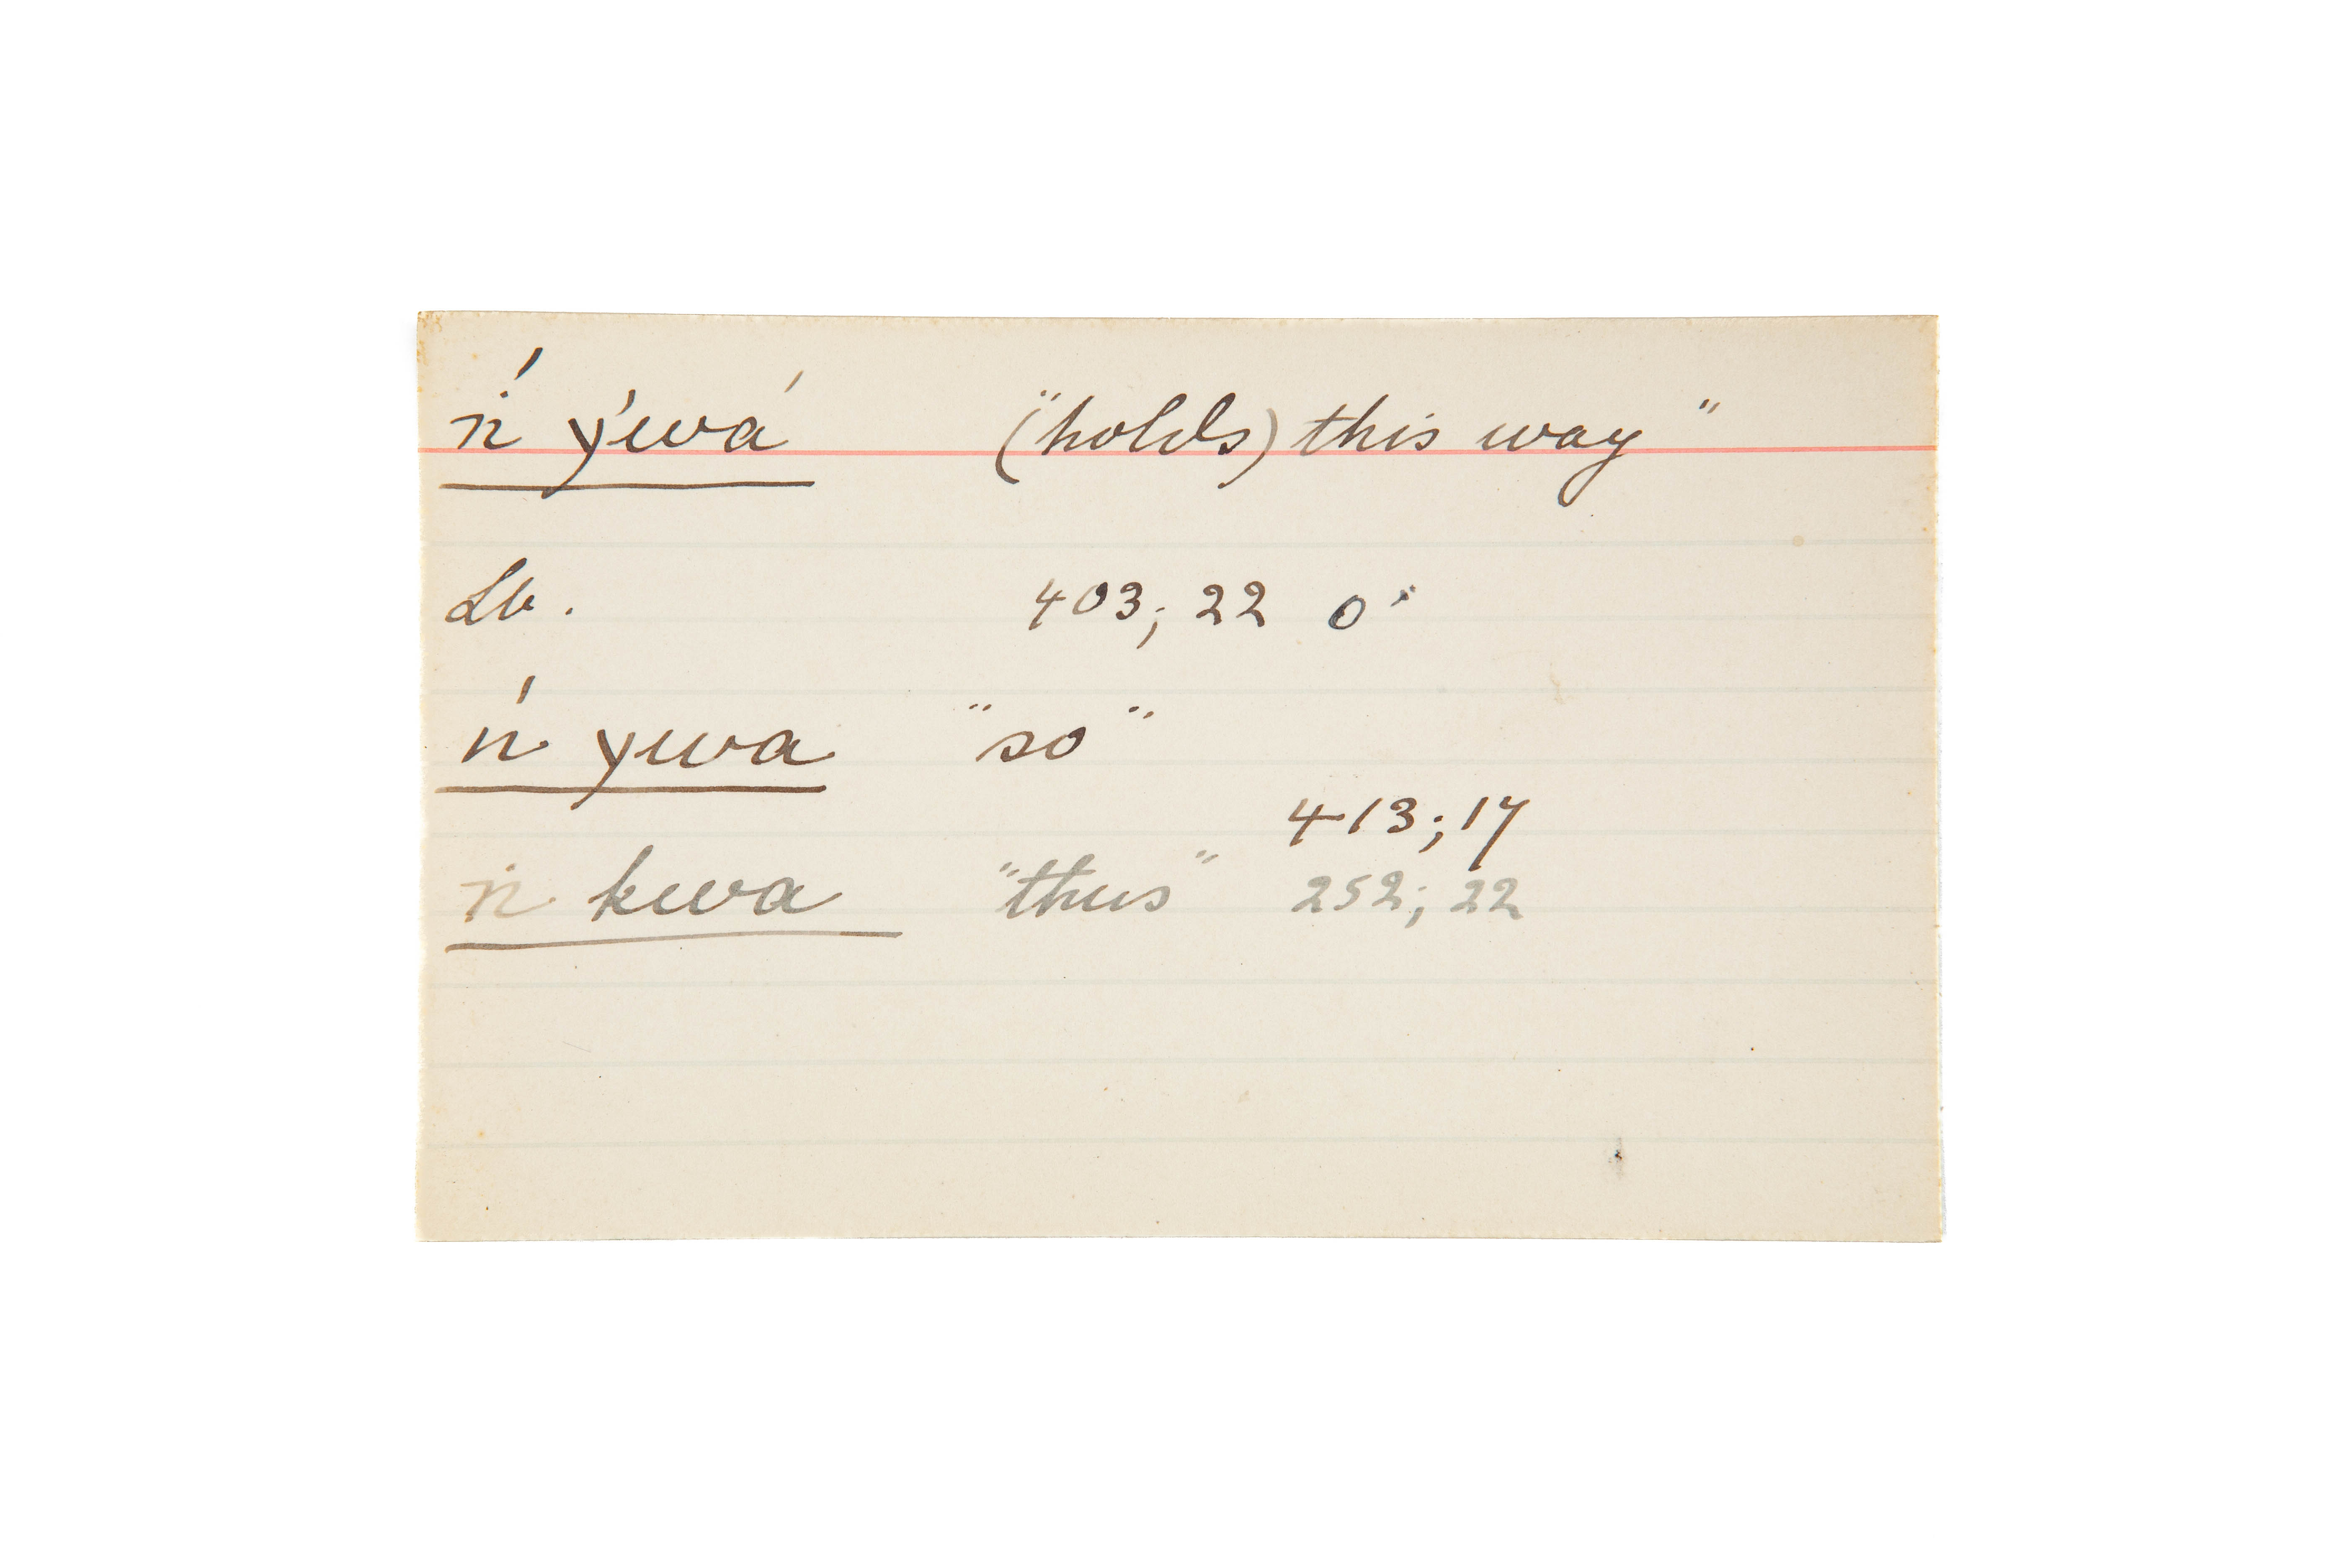 ṅ́ ý'wá ("holds) this way"
Lb. 403; 22 0ˣ
ṅ́ ywa "so"
413; 17
ṅ kwa "thus" 252; 22